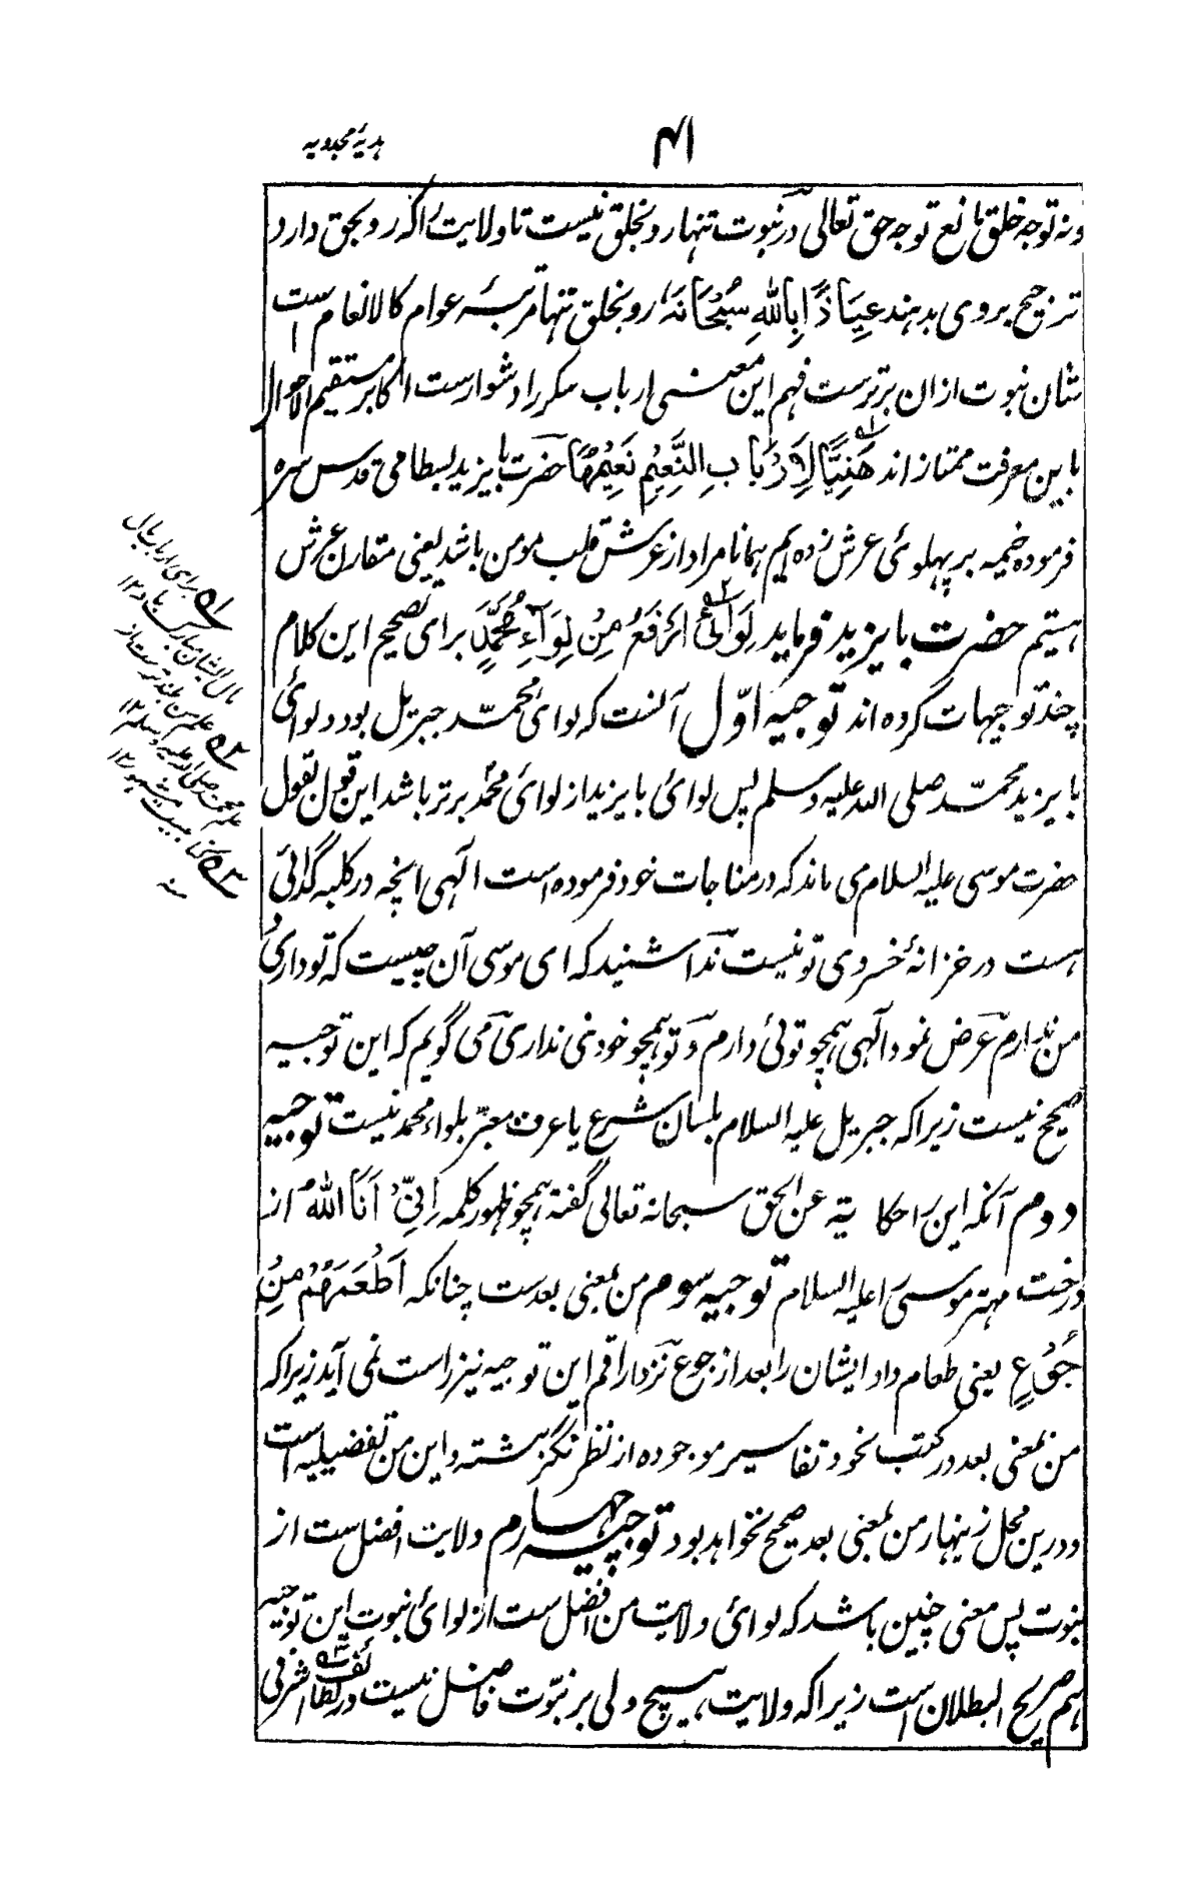 ۴۱
ہدیۂ مجددیہ
ونہ توجہ خلق مانع توجہ حق تعالی در نبوت تنہا رو بخلق نیست تا ولایت را کہ رو بحق دارد
ترجیح بروی بدہند عِیَاذًا بِاللّٰہِ سُبْحَانَہٗ رو بخلق تنہا مرتبۂ عوام کالانعام است
شان نبوت ازان برترست فہم این معنی ارباب سکر را دشوارست اکابر مستقیم الاحوال
باین معرفت ممتاز اند هَنِیْئًا لِاَرْبَابِ النَّعِیْمِ نَعِیْمُهَا حضرت بایزید بسطامی قدس سرہ
فرمودہ خیمہ بر پہلوئی عرش زدہ ایم ہمانا مراد از عرش قلب مومن باشد یعنی متقارن عرش
ہستیم حضرت بایزید فرماید لِوَائِیْ اَرْفَعُ مِنْ لِوَآءِ مُحَمَّدٍ برای تصحیح این کلام
چند توجیہات کردہ اند توجیہ اوّل آنست کہ لوای محمّد جبریل بود و لوائی
بایزید محمّد صلی اللہ علیہ وسلم پس لوائی بایزید از لوائی محمّد برتر باشد این قول بقول
حضرت موسی علیہ السلام می ماند کہ در مناجات خود فرمودہ است الٰہی انچہ در کلبہ گدائی
ہست در خزانۂ خسروی تو نیست ندا شنید کہ ای موسی آن چیست کہ تو داری و
من ندارم عرض نمود الٰہی ہمچو توئی دارم و تو ہمچو خودنی نداری می گویم کہ این توجیہ
صحیح نیست زیراکہ جبریل علیہ السلام بلسان شرع یا عرف معبّر بلواء محمد نیست توجیہ
دوم آنکہ این را حکایتہ عن الحق سبحانہ تعالی گفتہ ہمچو ظہور کلمہ اِنِّیْ اَنَا اللّٰہُ از
درخت مہتر موسی را علیہ السلام توجیہ سوم من بمعنی بعدست چنانکہ اَطْعَمَهُمْ مِنْ
جُوْعٍ یعنی طعام داد ایشان را بعد از جوع نزد راقم این توجیہ نیز راست نمی آید زیراکہ
من بمعنی بعد در کتب نحو و تفاسیر موجودہ از نظر نگزشتہ و این من تفضیلیہ است
و درین محل زینہار من بمعنی بعد صحیح نخواہد بود توجیہ چہارم ولایت افضل ست از
نبوت پس معنی چنین باشد کہ لوائی ولایت من افضل ست از لوائی نبوت این توجیہ
ہم صریح البطلان است زیراکہ ولایت ہیچ ولی بر نبوّت فاضل نیست در لطائف اشرفی
۱ برای ارباب مال
مال ایشان مبارک باد ۱۲
۲ علم من بلند ترست از
علم محمد صلی اللہ علیہ وسلم ۱۲
۳ کتابیست مشہور ۱۲
منہ